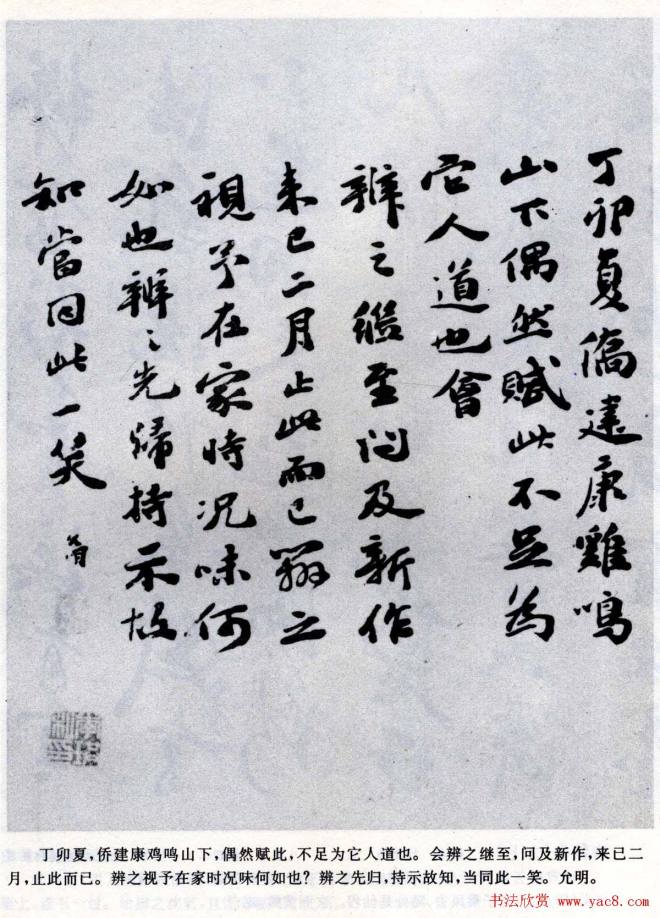 丁卯夏僑建康雞鳴
山下偶然賦此不足為
它人道也會
辨之繼至问及新作
来已二月止此而已辨之
視予在家時况味何
如也辨之先歸持示故
知當同此一笑
丁卯夏,侨建康鸡鸣山下,偶然赋此,不足为它人道也。会辨之继至,问及新作,来已二
月,止此而已。辨之视予在家时况味何如也?辨之先归,持示故知,当同此一笑。允明。
书法欣赏 www.yac8.com